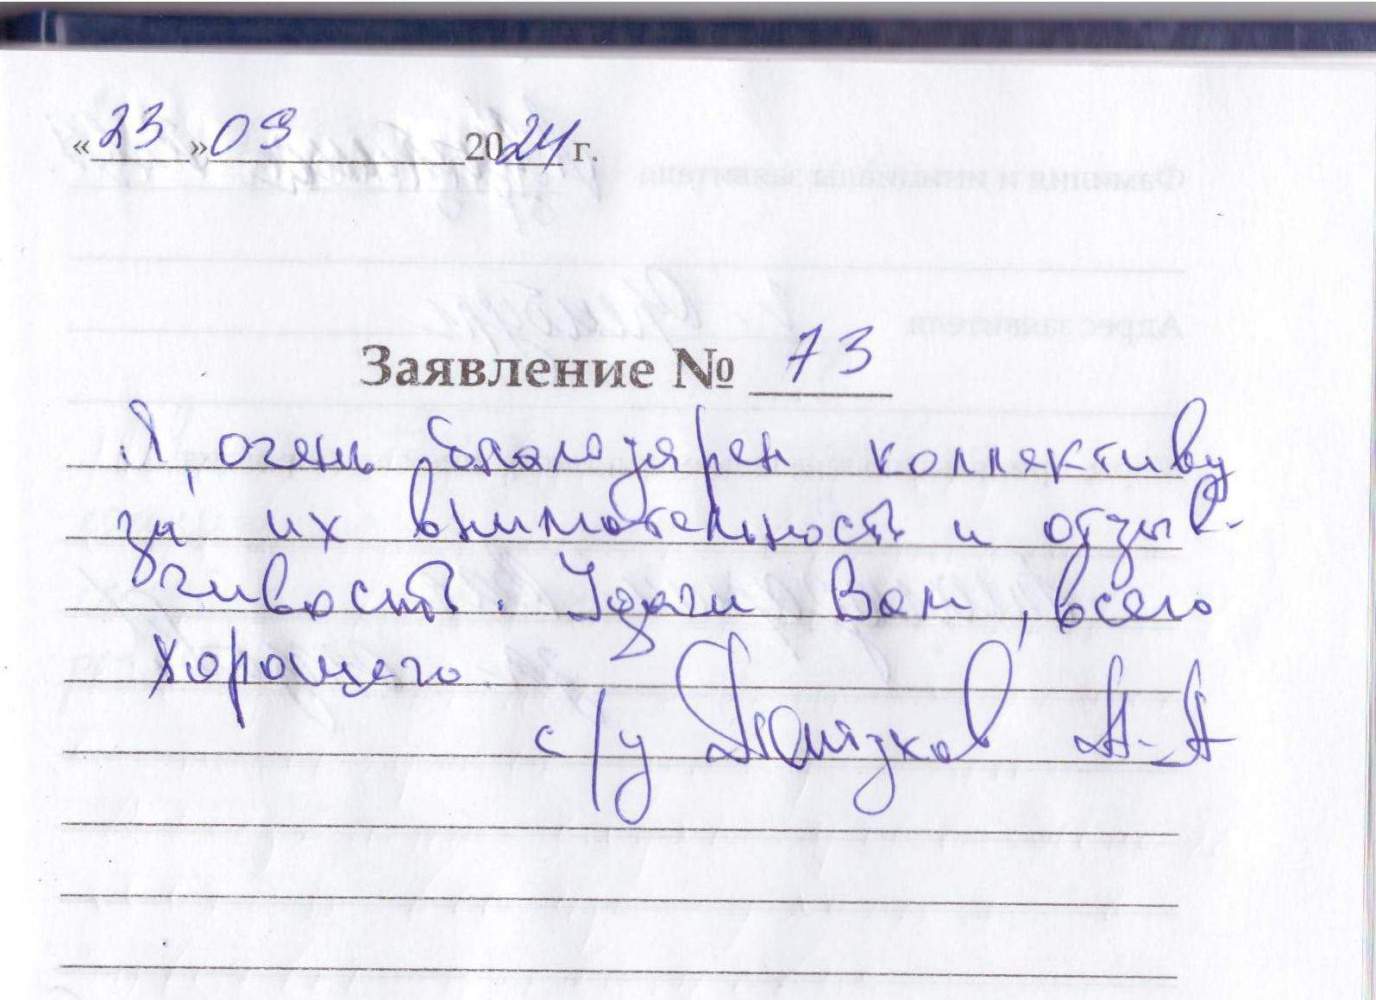 «23» 09 2024 г.
Заявление № 73
Я, очень благодарен коллективу
за их внимательность и отзыв-
чивость. Удачи Вам, всего
хорошего.
с/у А.А